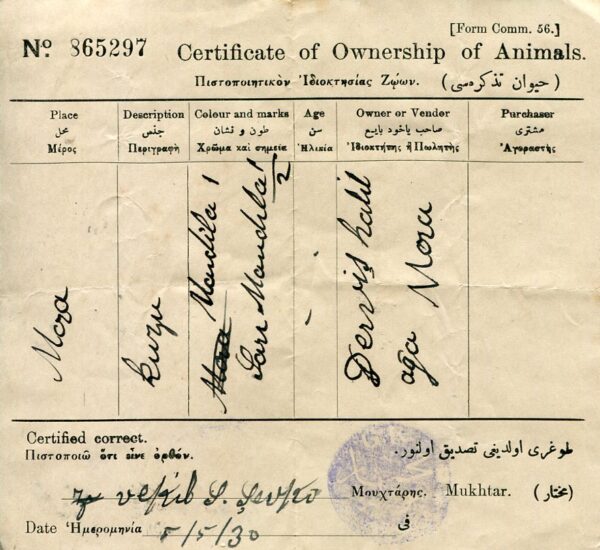 [Form Comm. 56.]
Nº 865297 Certificate of Ownership of Animals.
Πιστοποιητικὸν Ἰδιοκτησίας Ζῴων. (حيوان تذكره‌سى)
Place Description Colour and marks Age Owner or Vendor Purchaser
محل جنس طون و نشان سن صاحب ياخود بايع مشترى
Μέρος Περιγραφὴ Χρῶμα καὶ σημεῖα Ἡλικία Ἰδιοκτήτης ἢ Πωλητής Ἀγοραστής
Mora
kuzu
Mandila 1
Sarı Mandila 1/2
Derviş halil
aga Mora
Certified correct.
Πιστοποιῶ ὅτι εἶνε ὀρθόν. طوغرى اولديغنى تصديق اولنور.
Μουχτάρης. Mukhtar. (مختار)
Date Ἡμερομηνία 5/5/30 فى